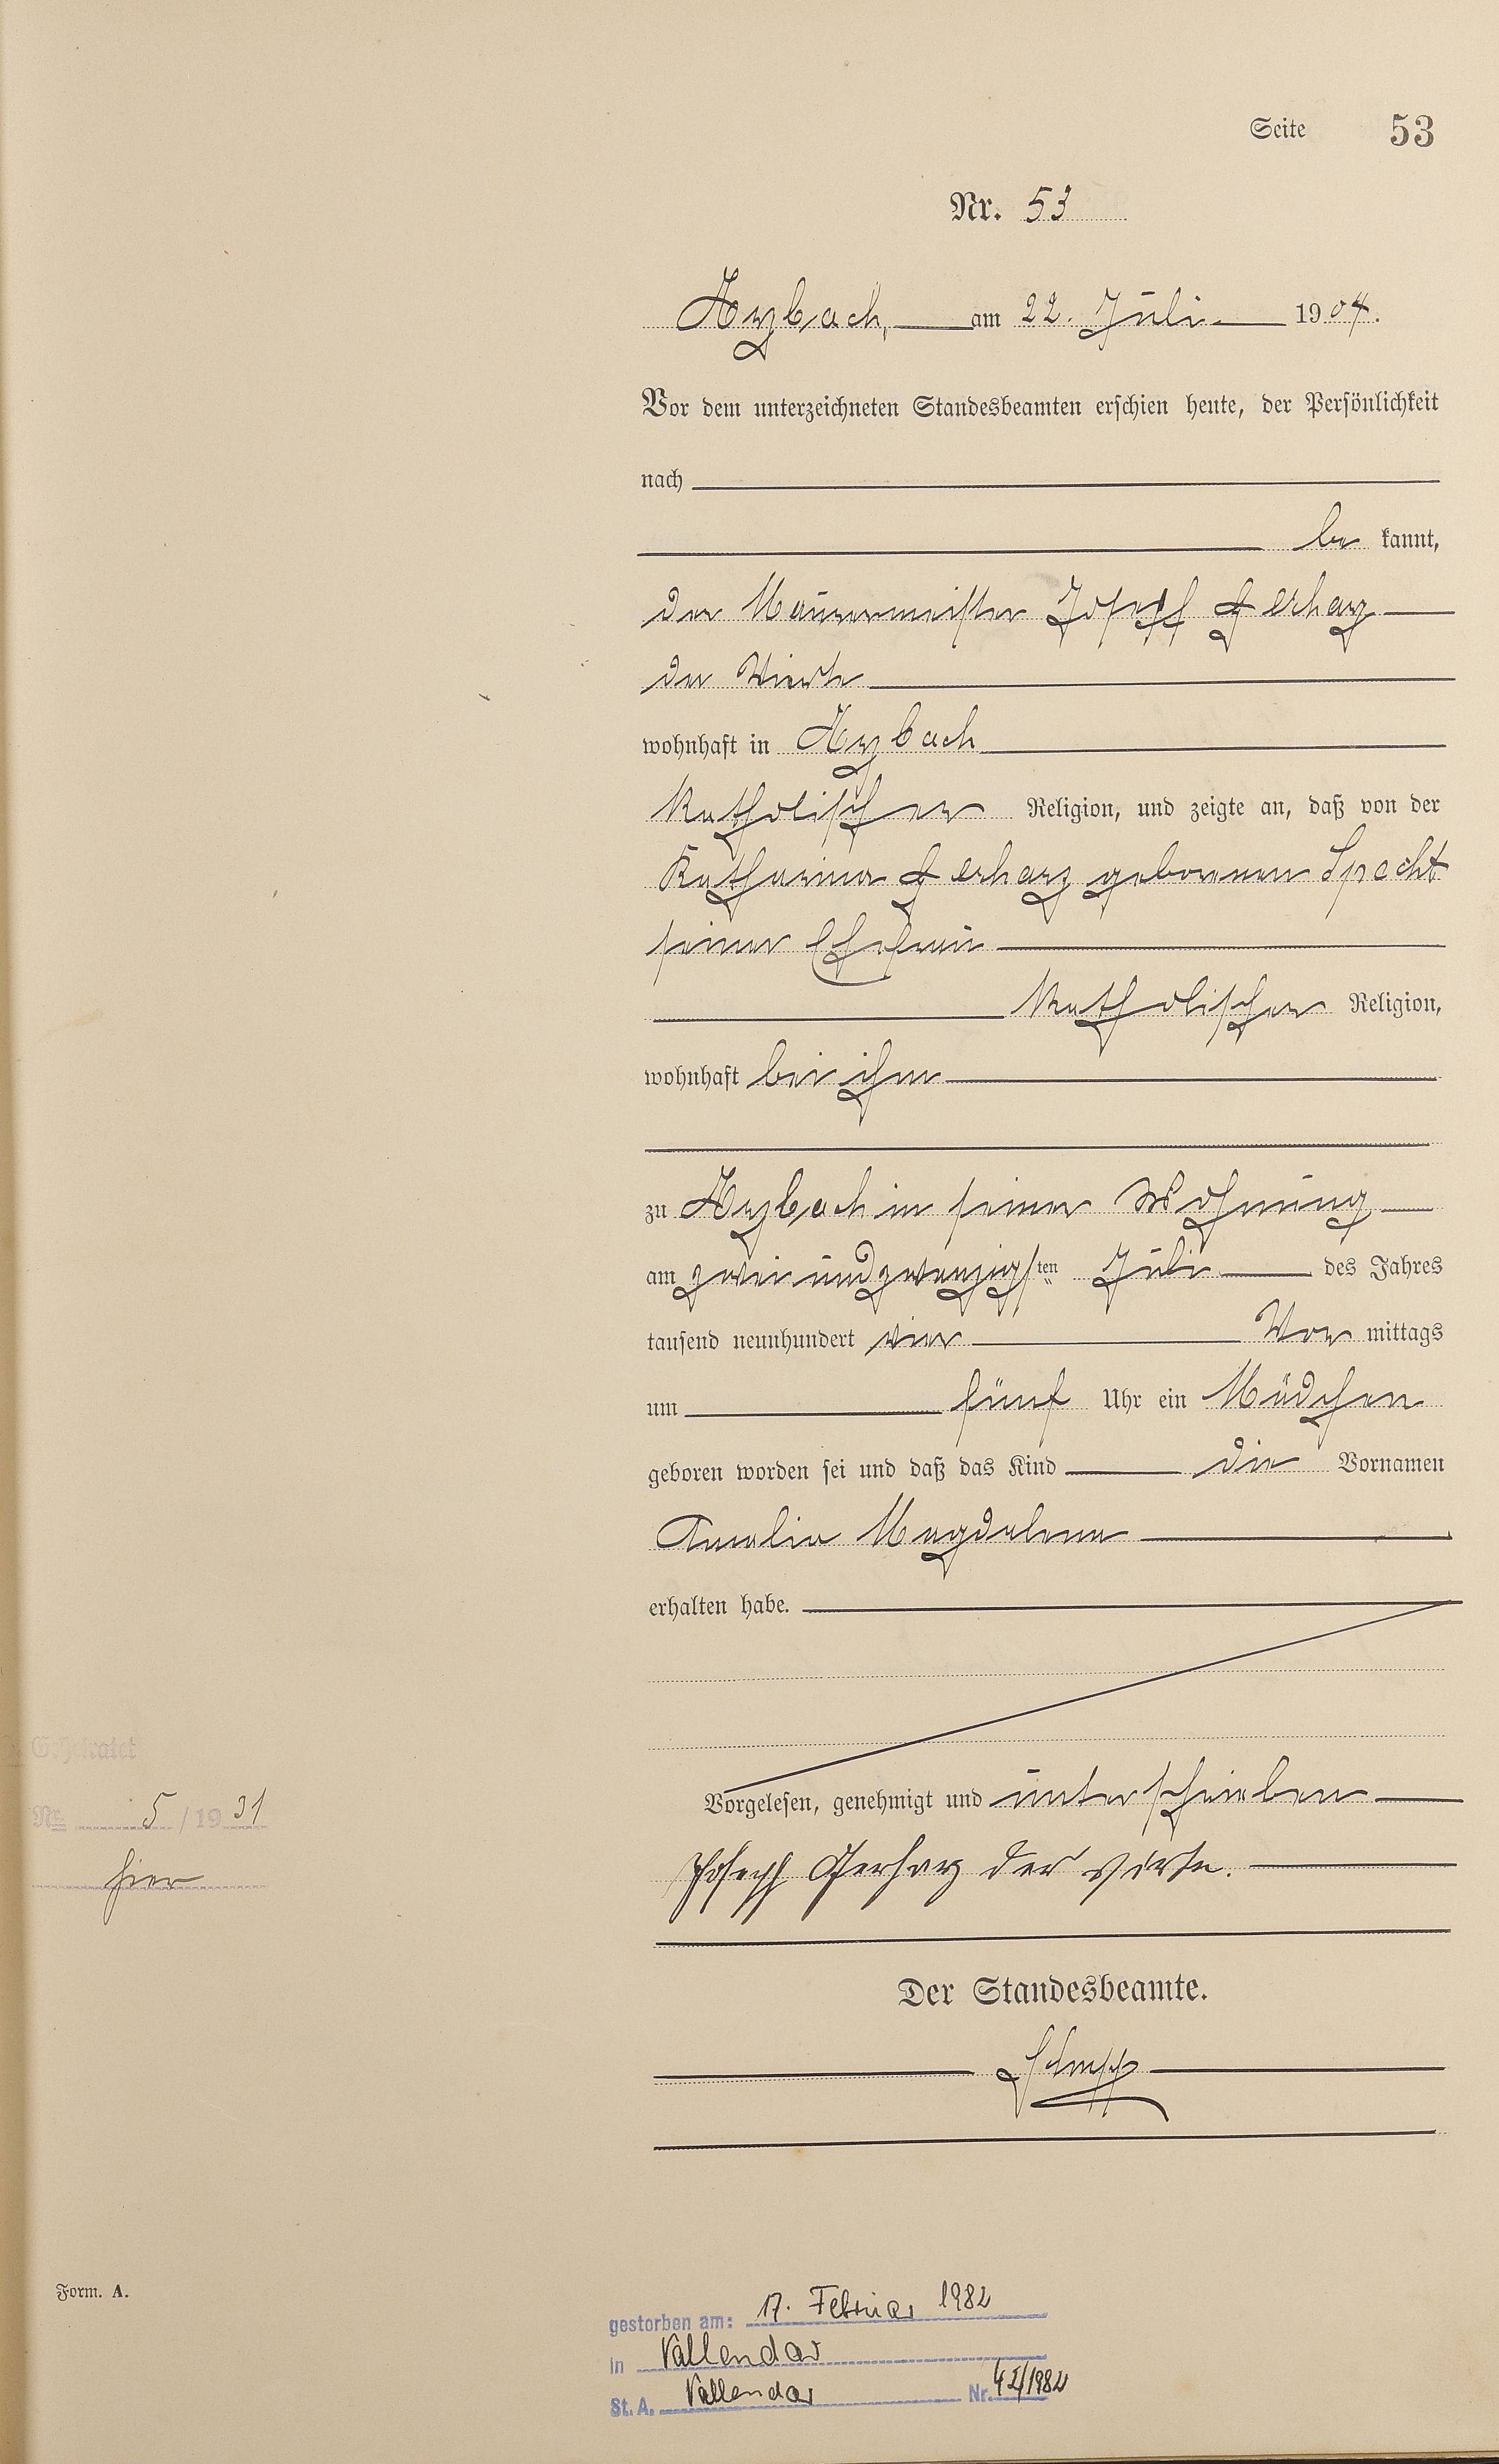 Seite 53
Nr. 53
Arzbach, am 22. Juli 1904.
Vor dem unterzeichneten Standesbeamten erschien heute, der Persönlichkeit
nach
be kannt,
der Maurermeister Josef Gerharz
der Vierte
wohnhaft in Arzbach
katholischer Religion, und zeigte an, daß von der
Katharina Gerharz geborenen Specht
seiner Ehefrau
katholischer Religion,
wohnhaft bei ihm
zu Arzbach in seiner Wohnung
am zweiundzwanzigsten Juli des Jahres
tausend neunhundert vier Vor mittags
um fünf Uhr ein Mädchen
geboren worden sei und daß das Kind die Vornamen
Amalia Magdalena
erhalten habe.
Geheiratet
Nr. 5 / 19 31
hier
Vorgelesen, genehmigt und unterschrieben
Joseph Gerharz der vierte.
Der Standesbeamte.
Form. A.
gestorben am: 17. Februar 1982
in Vallendar
St. A. Vallendar Nr. /1982